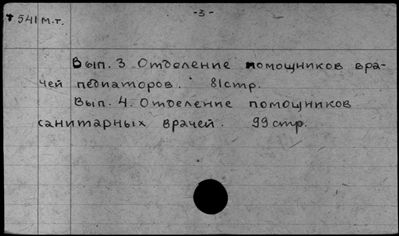 -3-
541 м.т.
Вып. 3. Отделение помощников вра-
чей педиаторов. 81 стр.
Вып. 4. Отделение помощников
санитарных врачей. 99 стр.